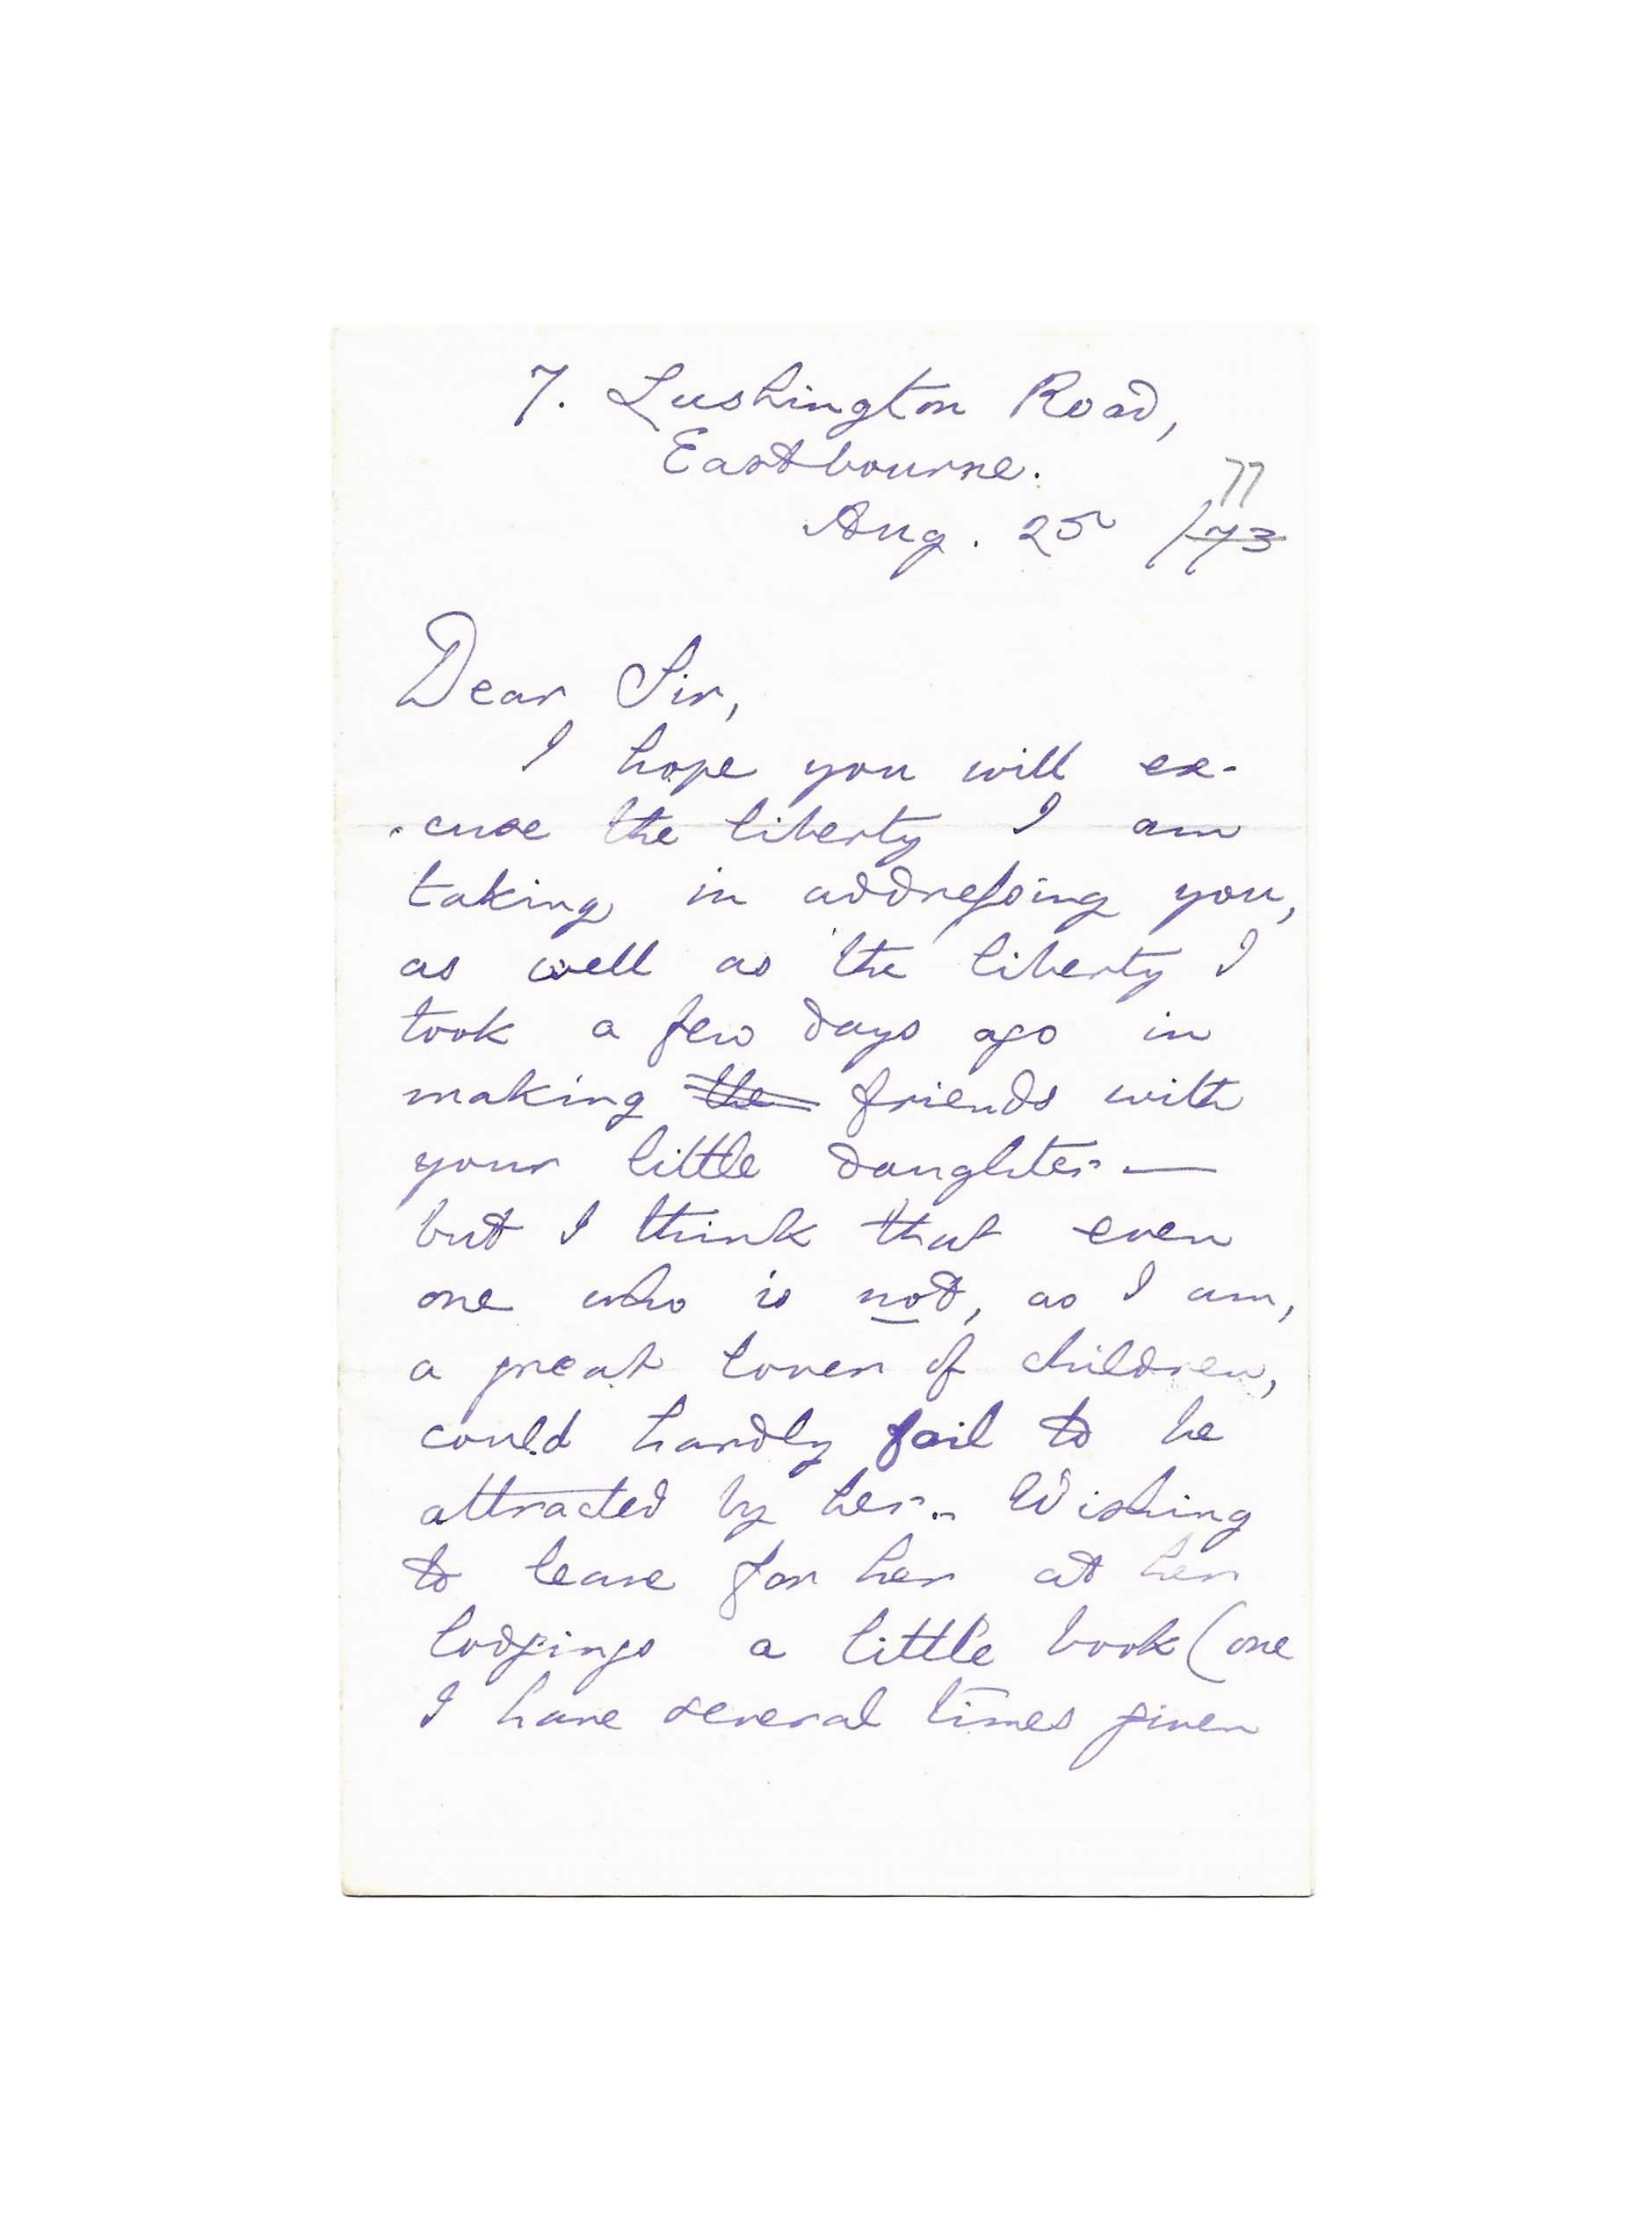 7. Lushington Road,
Eastbourne.
77
Aug. 25 /73
Dear Sir,
I hope you will ex-
-cuse the liberty I am
taking in addressing you,
as well as the liberty I
took a few days ago in
making the friends with
your little daughter —
but I think that even
one who is not, as I am,
a great lover of children,
could hardly fail to be
attracted by her. Wishing
to leave for her at her
lodgings a little book (one
I have several times given